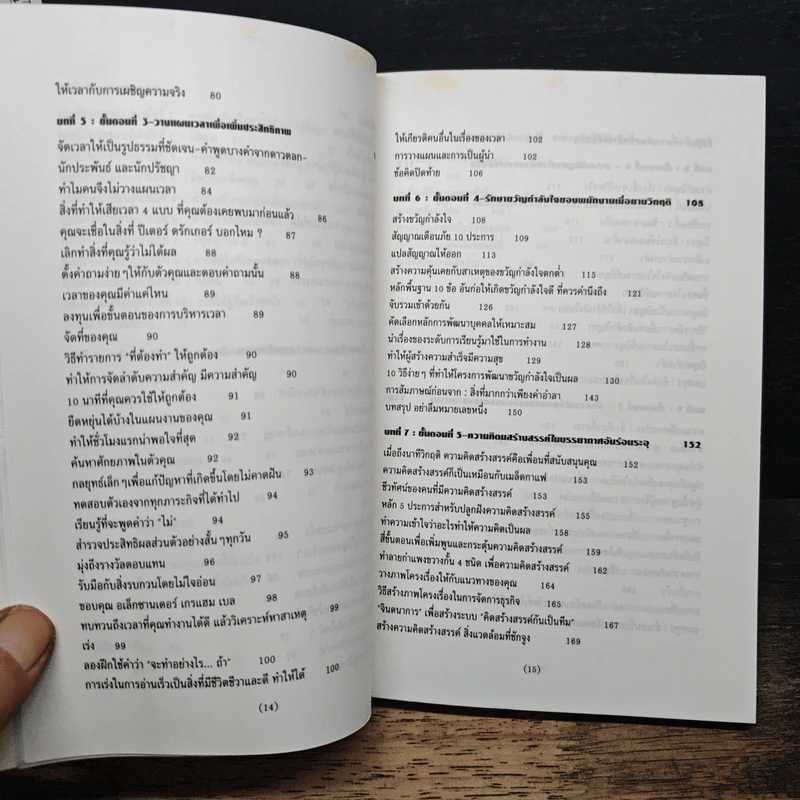 ให้เวลากับการเผชิญความจริง 80
บทที่ 5 : ขั้นตอนที่ 3–วางแผนเวลาเพื่อเพิ่มประสิทธิภาพ
จัดเวลาให้เป็นรูปธรรมที่ชัดเจน–คำพูดบางคำจากดาวตลก–
นักประพันธ์ และนักปรัชญา 82
ทำไมคนจึงไม่วางแผนเวลา 84
สิ่งที่ทำให้เสียเวลา 4 แบบ ที่คุณต้องเคยพบมาก่อนแล้ว 86
คุณจะเชื่อในสิ่งที่ ปีเตอร์ ดรักเกอร์ บอกไหม ? 87
เลิกทำสิ่งที่คุณรู้ว่าไม่ได้ผล 88
ตั้งคำถามง่าย ๆ ให้กับตัวคุณและตอบคำถามนั้น 88
เวลาของคุณมีค่าแค่ไหน 89
ลงทุนเพื่อขั้นตอนของการบริหารเวลา 89
จัดที่ของคุณ 90
วิธีทำรายการ "ที่ต้องทำ" ให้ถูกต้อง 90
ทำให้การจัดลำดับความสำคัญ มีความสำคัญ 90
10 นาทีที่คุณควรใช้ให้ถูกต้อง 91
ยืดหยุ่นได้บ้างในแผนงานของคุณ 91
ทำให้ชั่วโมงแรกน่าพอใจที่สุด 92
ค้นหาศักยภาพในตัวคุณ 92
กลยุทธ์เล็ก ๆ เพื่อแก้ปัญหาที่เกิดขึ้นโดยไม่คาดฝัน 93
ทดสอบตัวเองจากทุกภาระกิจที่ได้ทำไป 94
เรียนรู้ที่จะพูดคำว่า "ไม่" 94
สำรวจประสิทธิผลส่วนตัวอย่างสั้น ๆ ทุกวัน 95
มุ่งถึงรางวัลตอบแทน 96
รับมือกับสิ่งรบกวนโดยไม่ใจอ่อน 97
ขอบคุณ อเล็กซานเดอร์ เกรแฮม เบล 98
ทบทวนถึงเวลาที่คุณทำงานได้ดี แล้ววิเคราะห์หาสาเหตุ 99
เร่ง 99
ลองฝึกใช้คำว่า "จะทำอย่างไร... ถ้า" 100
การเร่งในการอ่านเร็วเป็นสิ่งที่มีชีวิตชีวาและดี ทำให้ได้ 100
(14)
ให้เกียรติคนอื่นในเรื่องของเวลา 102
การวางแผนและการเป็นผู้นำ 102
ข้อคิดปิดท้าย 106
บทที่ 6 : ขั้นตอนที่ 4–รักษาขวัญกำลังใจของพนักงานเมื่อยามวิกฤติ 108
สร้างขวัญกำลังใจ 108
สัญญาณเตือนภัย 10 ประการ 109
แปลสัญญาณให้ออก 113
สร้างความคุ้นเคยกับสาเหตุของขวัญกำลังใจตกต่ำ 115
หลักพื้นฐาน 10 ข้อ อันก่อให้เกิดขวัญกำลังใจดี ที่ควรคำนึงถึง 121
จับรวมเข้าด้วยกัน 126
คัดเลือกหลักการพัฒนาบุคคลให้เหมาะสม 127
นำเรื่องของระดับการเรียนรู้มาใช้ในการทำงาน 128
ทำให้ผู้สร้างความสำเร็จมีความสุข 129
10 วิธีง่าย ๆ ที่ทำให้โครงการพัฒนาขวัญกำลังใจเป็นผล 130
การสัมภาษณ์ก่อนจาก : สิ่งที่มากกว่าเพียงคำอำลา 143
บทสรุป อย่าลืมหมายเลขหนึ่ง 150
บทที่ 7 : ขั้นตอนที่ 5–ความคิดสร้างสรรค์ในบรรยากาศอันร้อนระอุ 152
เมื่อถึงนาทีวิกฤติ ความคิดสร้างสรรค์คือเพื่อนที่สนับสนุนคุณ 152
ความคิดสร้างสรรค์ก็เป็นเหมือนกับเมล็ดกาแฟ 153
ชีวทัศน์ของคนที่มีความคิดสร้างสรรค์ 153
หลัก 5 ประการสำหรับปลูกฝังความคิดสร้างสรรค์ 155
ทำความเข้าใจว่าอะไรทำให้ความคิดเป็นผล 158
สี่ขั้นตอนเพื่อเพิ่มพูนและกระตุ้นความคิดสร้างสรรค์ 159
ทำลายกำแพงขวางกั้น 4 ชนิด เพื่อความคิดสร้างสรรค์ 162
วางภาพโครงเรื่องให้กับแนวทางของคุณ 164
วิธีสร้างภาพโครงเรื่องในการจัดการธุรกิจ 165
"จินตนาการ" เพื่อสร้างระบบ "คิดสร้างสรรค์กันเป็นทีม" 167
สร้างความคิดสร้างสรรค์ สิ่งแวดล้อมที่ชักจูง 169
(15)